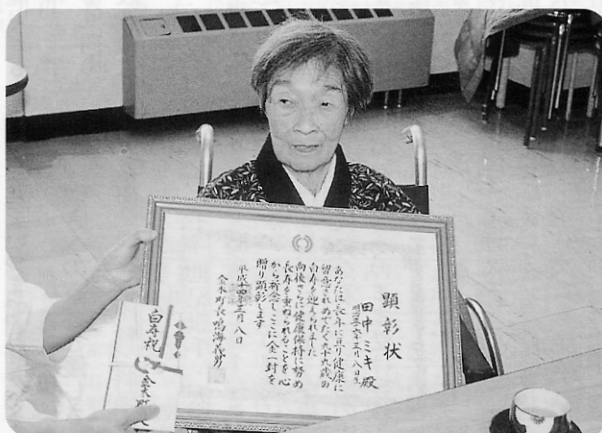 顕彰状
田中ミキ殿
明治三六年三月八日生
あなたは長年に亘り健康に
留意されめでたく九十九歳の
白寿を迎えられました
向後さらに健康保持に努め
長寿を重ねられることを心
から祈念しここに金一封を
贈り顕彰します
平成十四年三月八日
金木町長鳴海義男
白寿祝
金木町